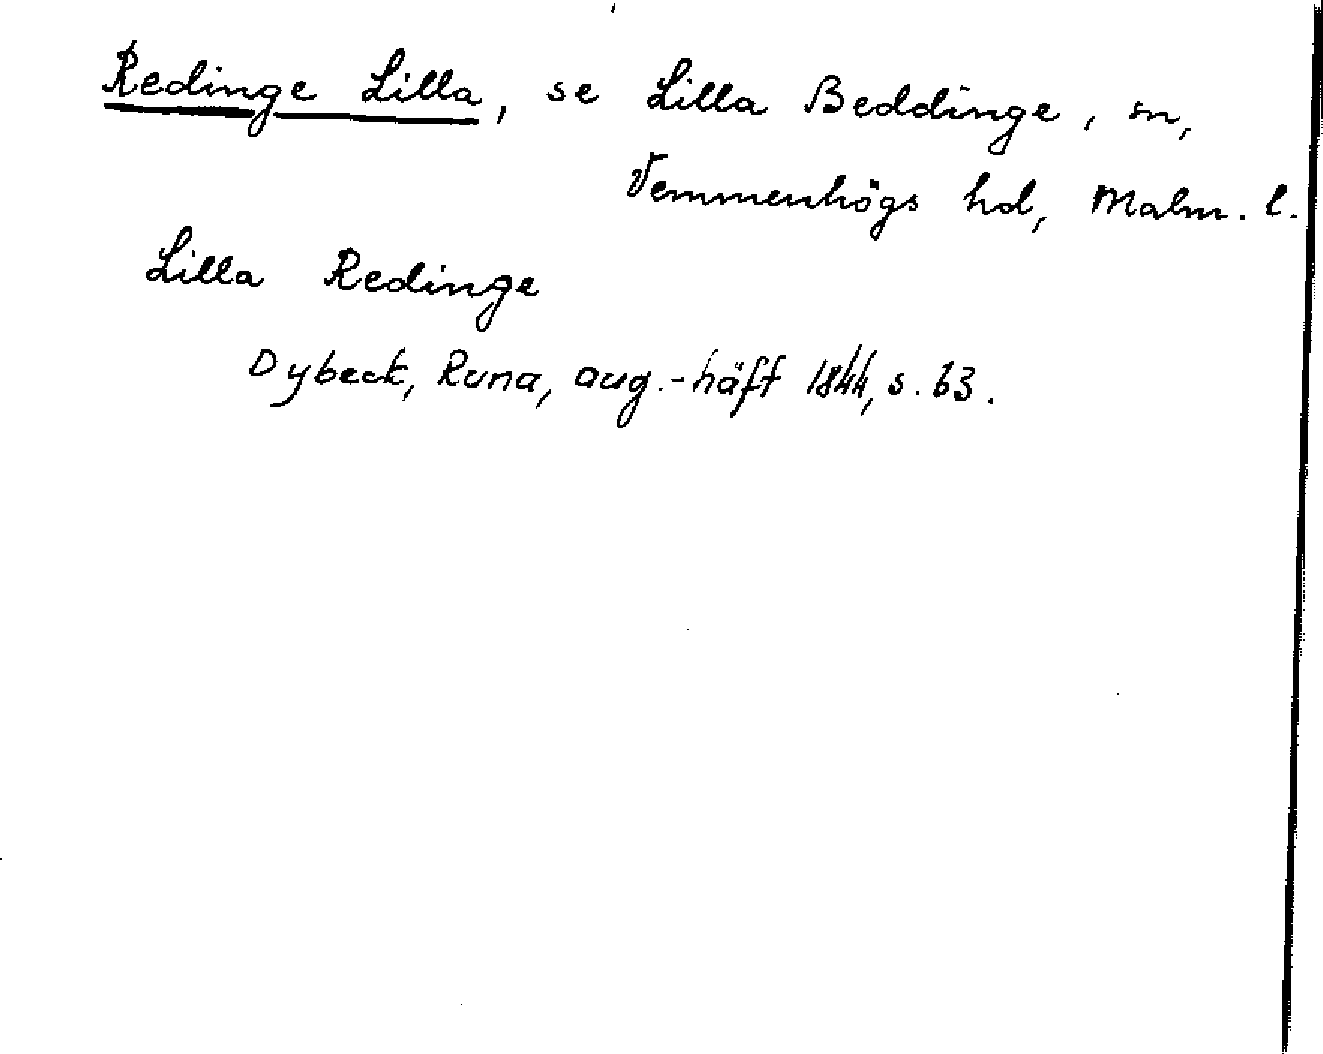 Redinge Lilla, se Lilla Beddinge, sn,
Vemmenhögs hd, Malm. l.
Lilla Redinge
Dybeck, Runa, aug.-häft 1844, s. 63.